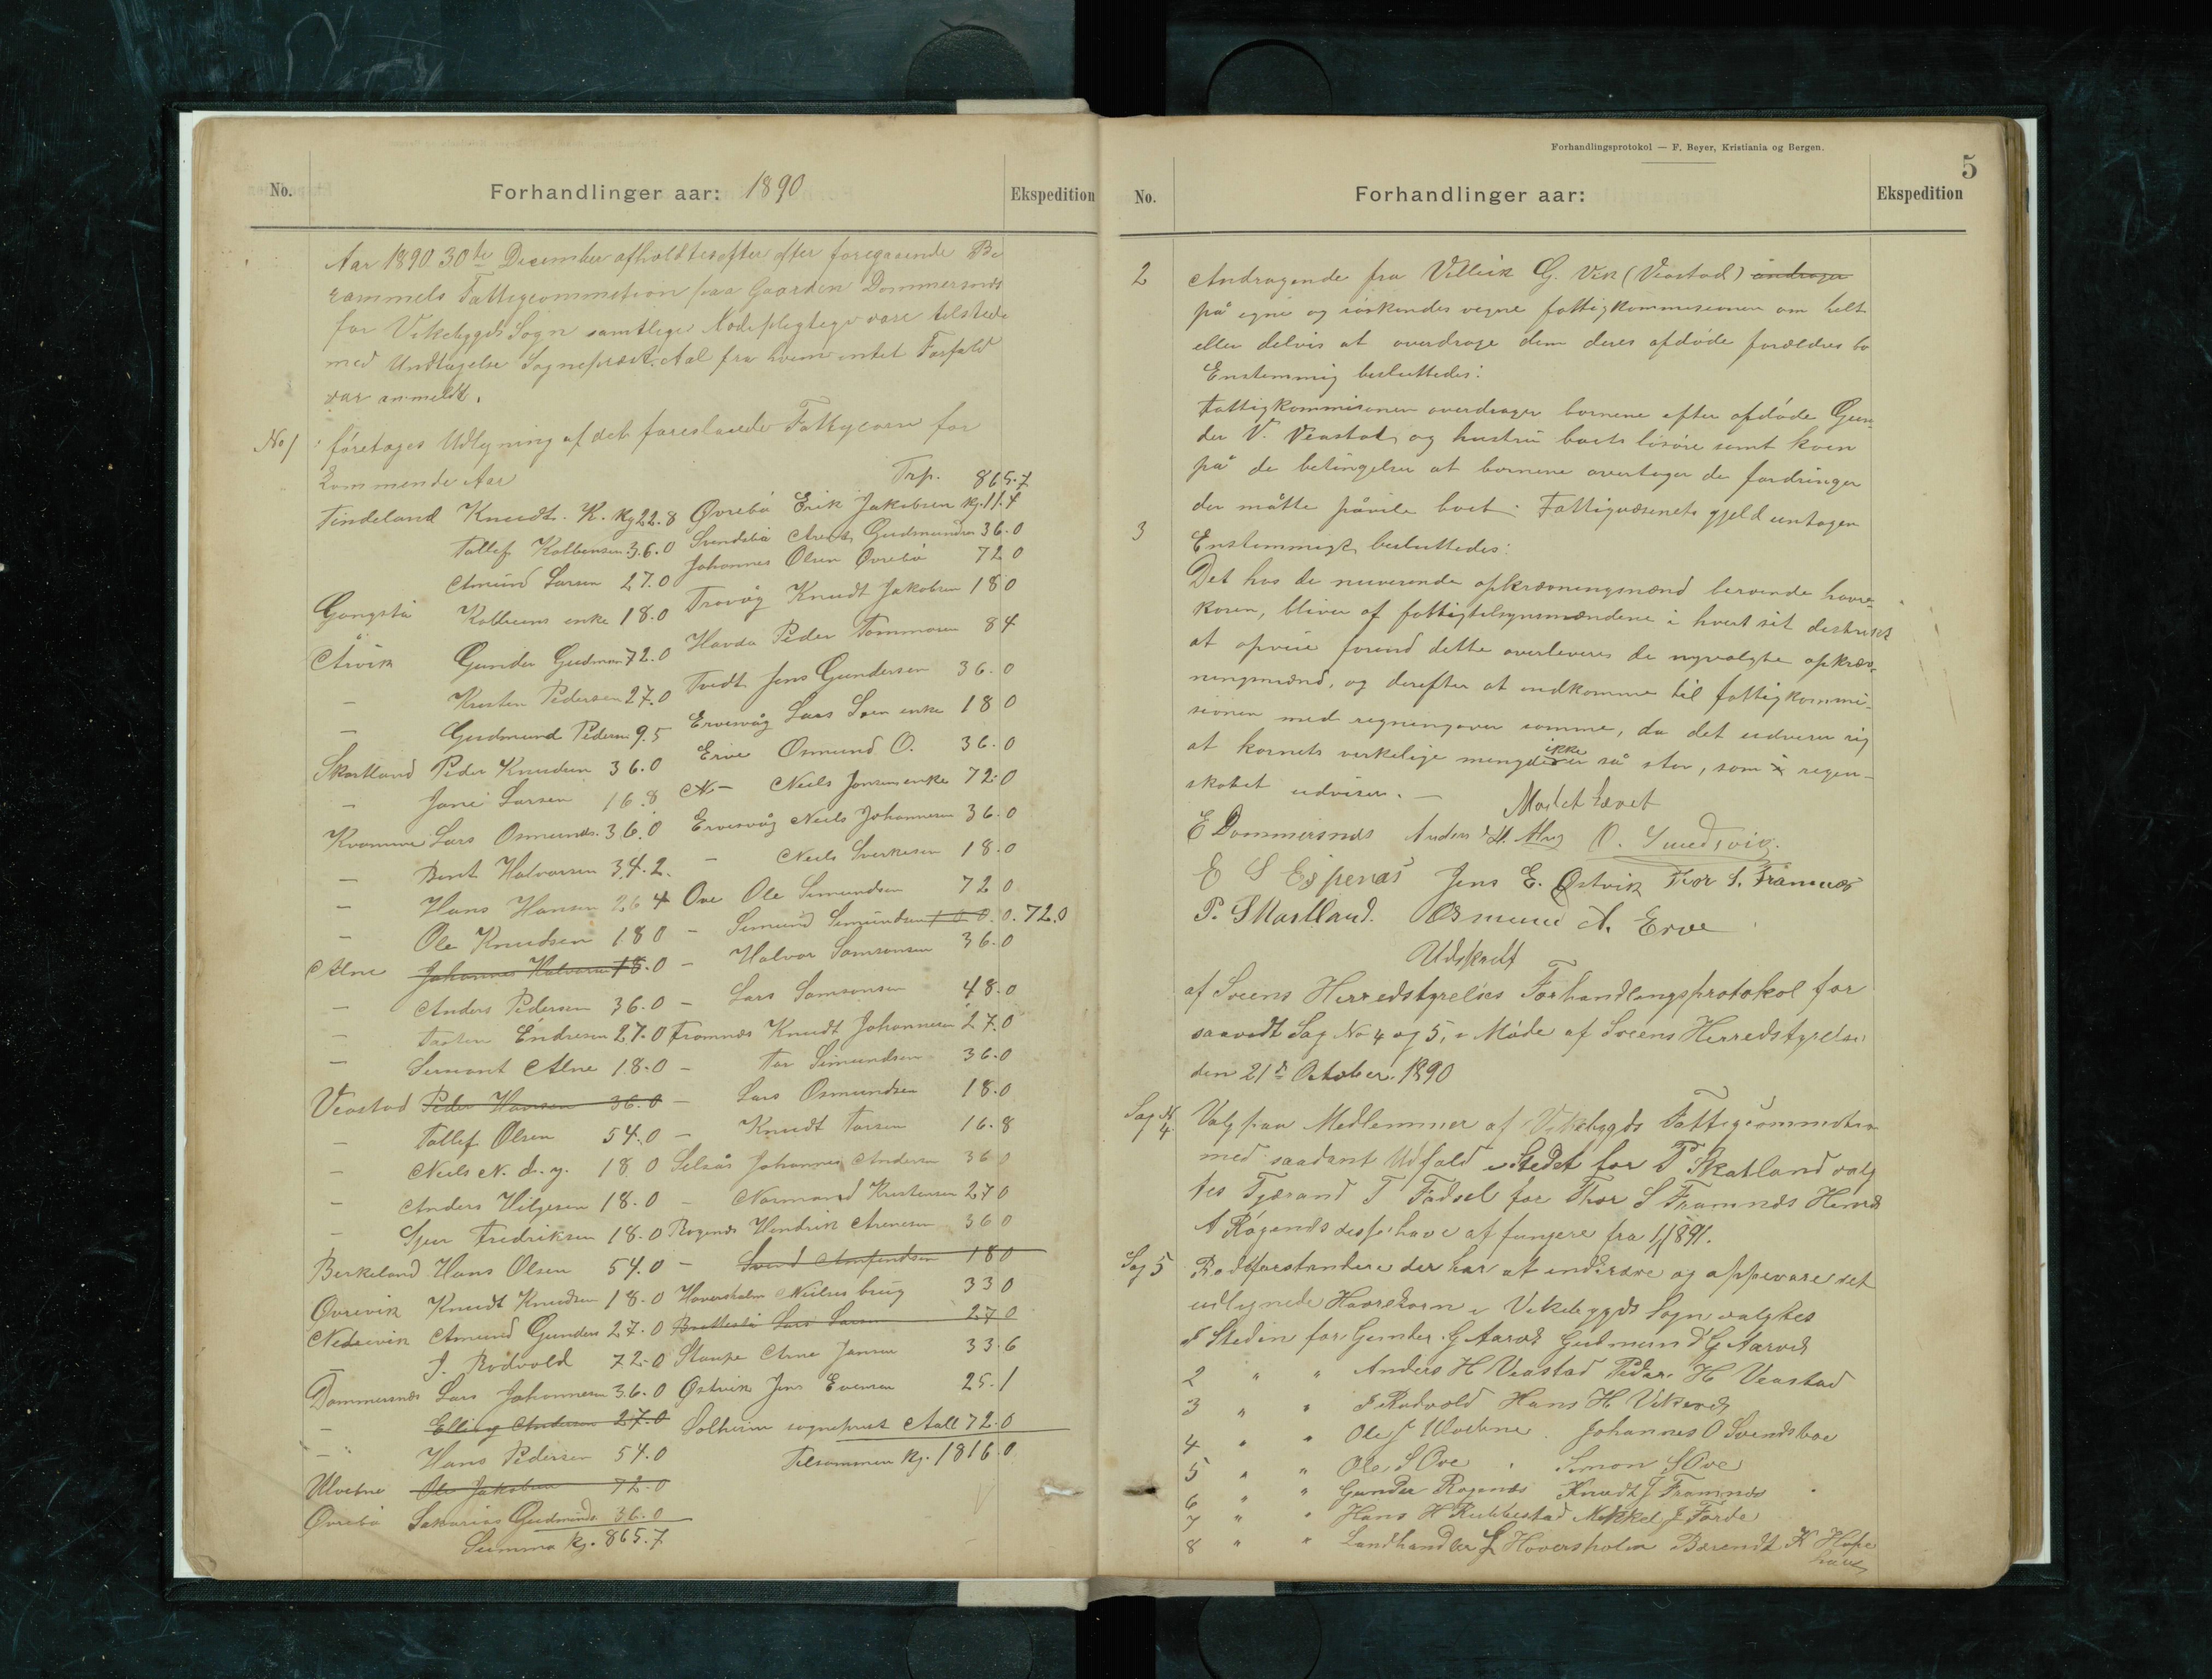 No.
Forhandlinger aar: 1890
Ekspedition
Aar 1890 30te December afholdtes efter foregaaende Be
rammels Fattigcommition paa Gaarden Dommersnes
for Vikebygds Sogn samtlige Mødepligtige vare tilstede
med Undtagelse Sognepræst Aal fra hvem intet Forfald
var anmeldt.
No 1 foretages Udlygning af det foreslaaede Fattigcorn for
kommende Aar
Tindeland Knudt. K. Kg 22.8
Tollef Kolbensen 36.0
Amund Larsen 27.0
Gangstø Kolbeens enke 18.0
Årvik Gunder Gudmun 72.0
– Kristen Pedersen 27.0
– Gudmund Pedersen 9.5
Skartland Peder Knudsen 36.0
– Jone Larsen 16.8
Kvamme Lars Osmunds. 36.0
– Bent Halvorsen 34.2.
– Hans Hansen 26 4
– Ole Knudsen 18 0
Alne Johannes Halvorsen 18.0
– Anders Pedersen 36.0
– Torsten Endresen 27.0
– Simont Alne 18.0
Veastad Peder Hansen 36.0
– Tollef Olsen 54.0
– Niels N. d. y. 18 0
– Anders Helgesen 18.0
– Sjur Fredriksen 18.0
Berkeland Hans Olsen 54.0
Øvrevik Knudt Knudsen 18.0
Nedrevik Amund Gunders 27.0
– J. Rodvold 72.0
Dommersnes Lars Johannesen 36.0
– Elling Andersen 27.0
– Hans Pedersen 54.0
Ulvetne Ole Jakobsen 72.0
Øvrebø Sakarias Gudmunds. 36.0
Summa Kg. 865.7
Trp. 865.7
Øvrebø Erik Jakobsen Kg. 11.4
Svendsbø Arent Gudmundsen 36.0
Johannes Olsen Øvrebø 72 0
Trovåg Knudt Jakobsen 18 0
Havda Peder Tommasen 8 4
Tvedt Jens Gundersen 36.0
Ervesvåg Lars Loen enke 18 0
Erve Osmund O. 36.0
N – Niels Jonsens enke 72.0
Ervesvåg Niels Johannesen 36.0
– Niels Sverkesen 18.0
Ove Ole Simundsen 72 0
– Simund Simundsen 72.0
– Halvor Samsonsen 36.0
– Lars Samsonsen 48.0
Framnæs Knudt Johannesen 27.0
– Tor Simundsen 36.0
– Lars Osmundsen 18.0
– Knudt Torsen 16.8
Selsås Johannes Andersen 36 0
– Normand Kristensen 27 0
Rogenæs Hendrik Arnesen 36 0
– Svend Amfindsen 18 0
Hoversholm Nielses brug 33 0
Lars Larsen 27 0
Staupe Arne Jansen 33.6
Østvik Jens Evensen 25.1
Solheim sogneprest Aall 72.0
Tilsammen Kg. 1816 0
Forhandlingsprotokol — F. Beyer, Kristiania og Bergen.
5
No.
Forhandlinger aar:
Ekspedition
2 Andragende fra Villeik G. Vik (Veastad) andrager
på egne og søskendes vegne fattigkommisionen om helt
eller delvis at overdrage dem deres afdøde forældres bo
Enstemmig besluttedes:
Fattigkommisionen overdrager børnene efter afdøde Gun-
der V. Veastad og hustru boets løsøre samt koen
på de betingelser at børnene overtager de fordringer
der måtte påvile boet. Fattigvæsenets gjeld untagen
3 Enstemmigt besluttedes:
Det hos de nuverende opkrævningsmænd beroende havre-
koren, bliver af fattigtilsynsmændene i hvert sit distrikt
at opveie forend dette overleveres de nyvalgte opkræv-
ningsmænd, og derefter at indkomme til fattigkommi-
sionen med regning over samme, da det udviser sig
at kornets verkelige mengde ikke er så stor, som regen-
skabet udviser. – Mødet hævet
E Dommersnes Anders H. Alne O. Sundsvig.
E S Espenæs Jens E. Østvik Tior S. Framnæs
P. Skartland. Osmund A. Erve
Udskrift
af Sveens Herredstyrelses Forhandlingsprotokol for
saavidt Sag No 4 og 5, i Møde af Sveens Herredstyrelse
den 21de October. 1890
Sag N 4 Valg paa Medlemmer af Vikebygds Fattigcommition
med saadant Udfald i Stedet for P Skatland valg
tes Tjærand T Fadsel for Thor S Framnæs Henrik
A Røgenæs disse have at fungere fra 1/1 1891.
Sag 5 Rodeforstandere der har at indkræve og oppevare det
udlignede Havrekorn i Vikebygds Sogn valgtes
I Steden for Gunder. G Aarvik Gudmund G Aarvik
2 " " Anders H Veastad Peder H Veastad
3 " " J Rodvold Hans H Vikevik
4 " " Ole J Ulvetne. Johannes O Svendsboe
5 " " Ole S Ove " Simon S Ove
6 " " Gunder Rogenæs Knudt J Framnæs
7 " " Hans H Rubbestad Mikkel J Førde
8 " " Landhandler J Hoversholm Bærendt K